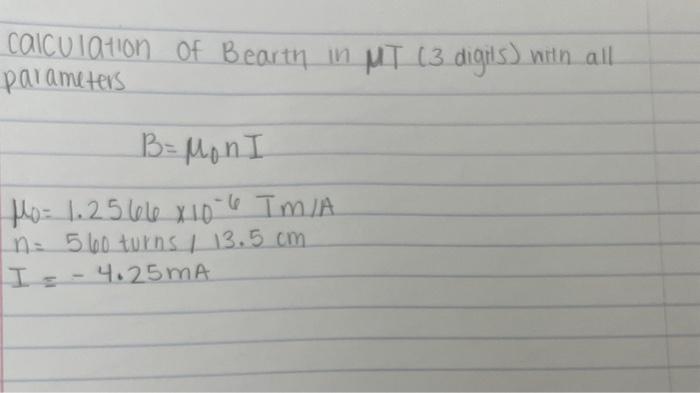 calculation of Bearth in μT (3 digits) with all
parameters
B= μ₀nI
μ₀= 1.2566 ×10⁻⁶ Tm/A
n= 560 turns / 13.5 cm
I = - 4.25mA